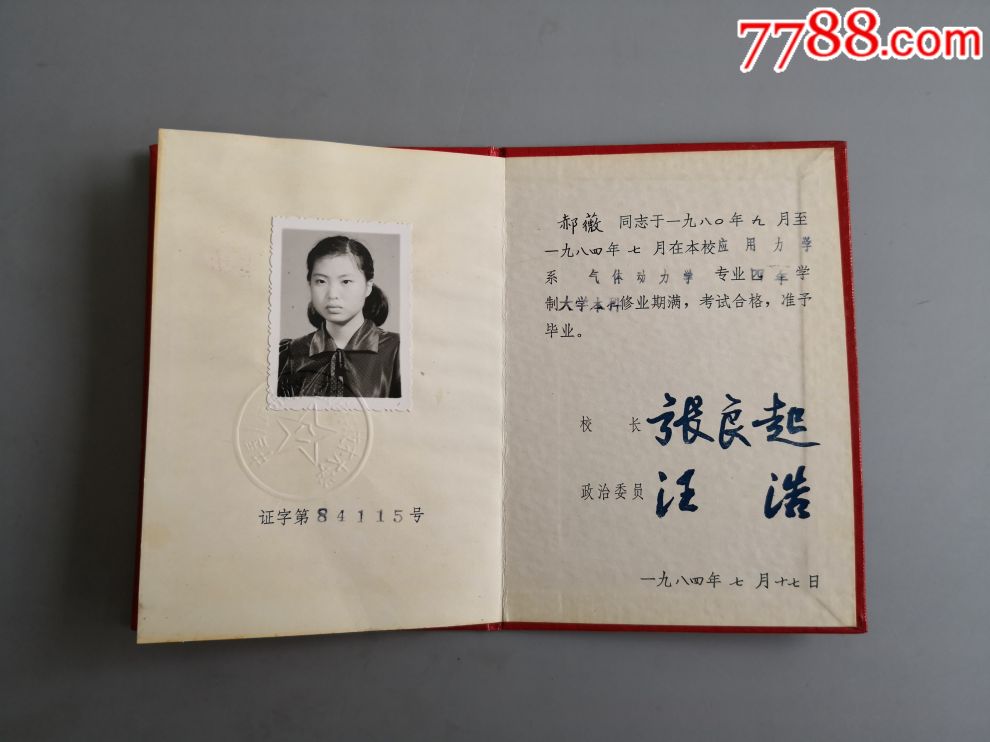 7788.com
证字第84115号
郝薇 同志于一九八〇年九月至
一九八四年七月在本校应用力学
系 气体动力学 专业四年学
制大学本科修业期满，考试合格，准予
毕业。
校 长 张良起
政治委员 汪浩
一九八四年七月十七日